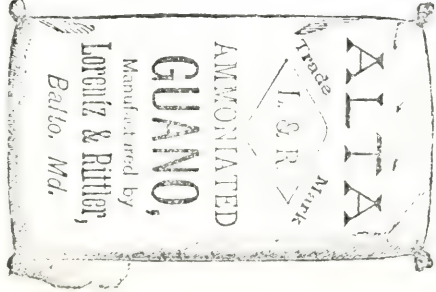 ALTA
Trade Mark
L. & R.
AMMONIATED
GUANO,
Manufactured by
Lorentz & Rittler,
Balto, Md.